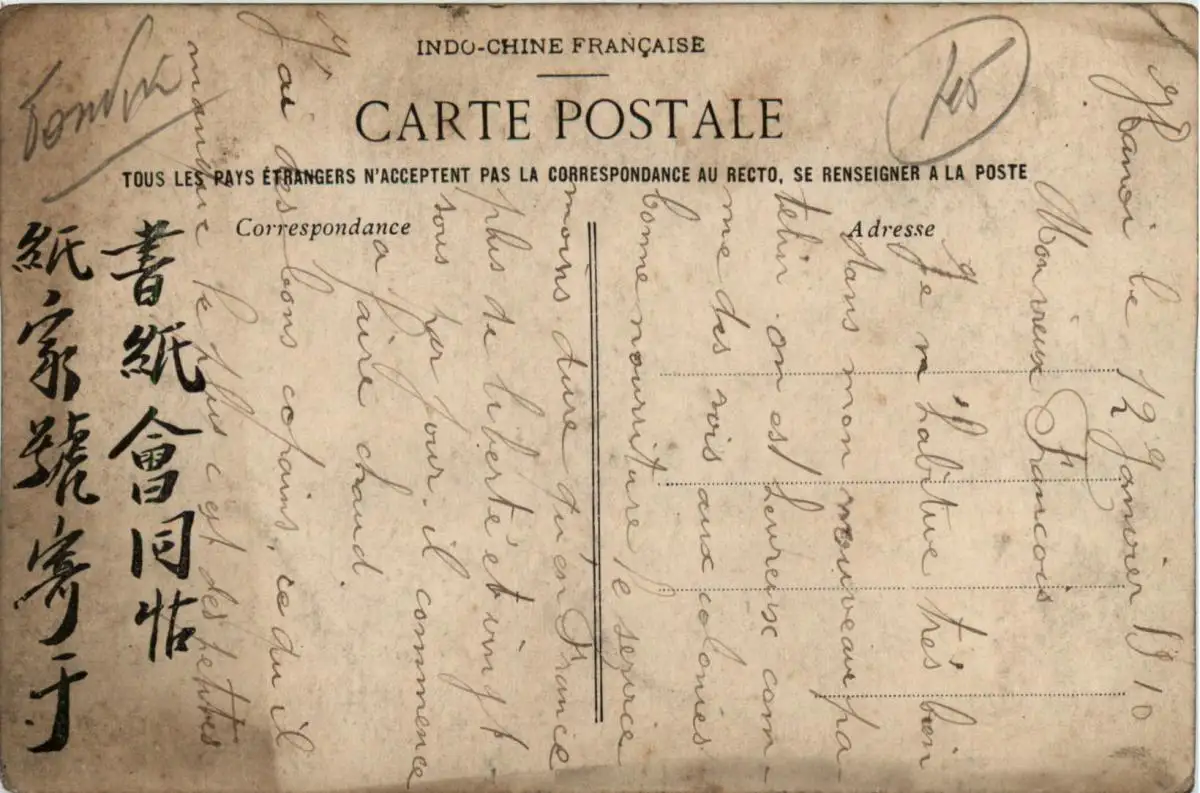 INDO-CHINE FRANÇAISE
CARTE POSTALE
TOUS LES PAYS ÉTRANGERS N'ACCEPTENT PAS LA CORRESPONDANCE AU RECTO, SE RENSEIGNER A LA POSTE
Correspondance
Adresse
Hanoi le 12 Janvier 1910
Mon vieux Francois
Je m'habitue très bien
dans mon nouveau pa-
telin on est heureux com-
me des rois aux colonies
bonne nourriture le service
moins dure qu'en France
plus de liberté et vingt
sous par jour. il commence
a faire chaud
J'ai des bons copains, ce qu'il
manque le plus c'est des petites
書紙會同帖
紙家號寄于